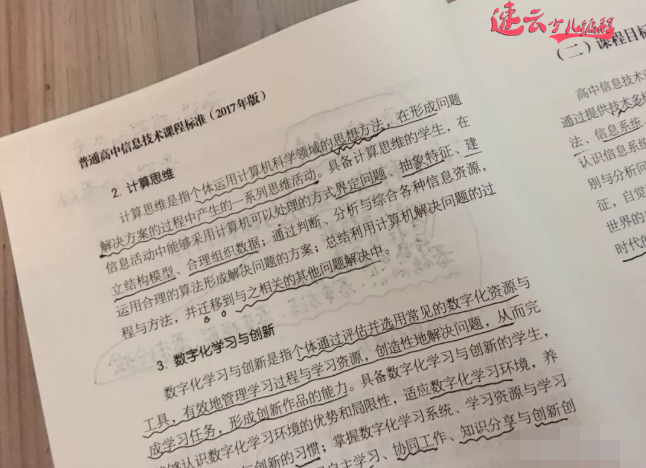 速云少儿编程
普通高中信息技术课程标准（2017年版）
2. 计算思维
计算思维是指个体运用计算机科学领域的思想方法，在形成问题
解决方案的过程中产生的一系列思维活动。具备计算思维的学生，在
信息活动中能够采用计算机可以处理的方式界定问题、抽象特征、建
立结构模型、合理组织数据；通过判断、分析与综合各种信息资源，
运用合理的算法形成解决问题的方案；总结利用计算机解决问题的过
程与方法，并迁移到与之相关的其他问题解决中。
3. 数字化学习与创新
数字化学习与创新是指个体通过评估并选用常见的数字化资源与
工具，有效地管理学习过程与学习资源，创造性地解决问题，从而完
成学习任务，形成创新作品的能力。具备数字化学习与创新的学生，
能够认识数字化学习环境的优势和局限性，适应数字化学习环境，养
与创新的习惯；掌握数字化学习系统、学习资源与学习
自主学习、协同工作、知识分享与创新创
（二）课程目标
高中信息技术
通过提供技术多样
法、信息系统
认识信息系统
别与分析问
征，自觉
世界的
时代的